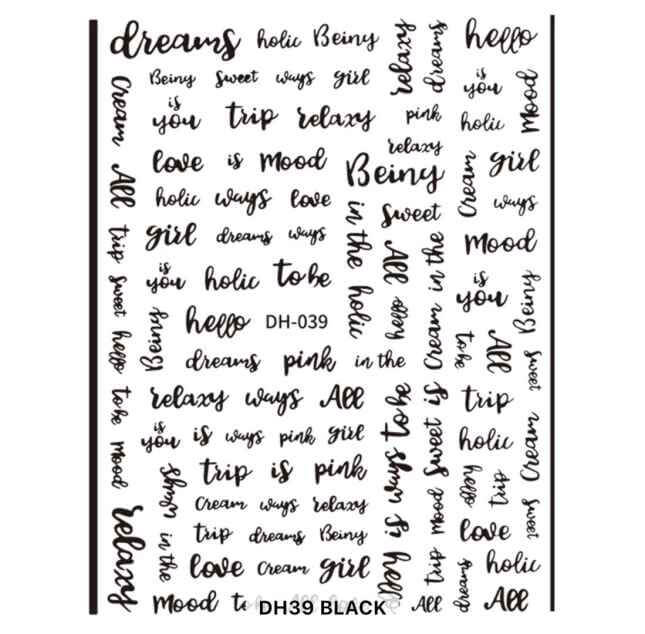 dreams holic Beiny relaxy dreams hello
Beiny sweet ways girl is you Mood
Cream is you trip relaxy pink holic
relaxy
love is Mood Beiny Cream girl
All holic ways love sweet ways
girl dreams ways in the holic All Cream in the Mood
trip is you holic to be hello is you Beiny
sweet Beiny hello DH-039 to be All
hello dreams pink in the sweet
to be relaxy ways All to be sweet is trip
is you is ways pink girl holic Cream
mood trip is pink hello trip
relaxy Cream ways relaxy mood sweet
in the trip dreams Beiny is love
love Cream girl hello trip dreams holic
Mood DH39 BLACK All All